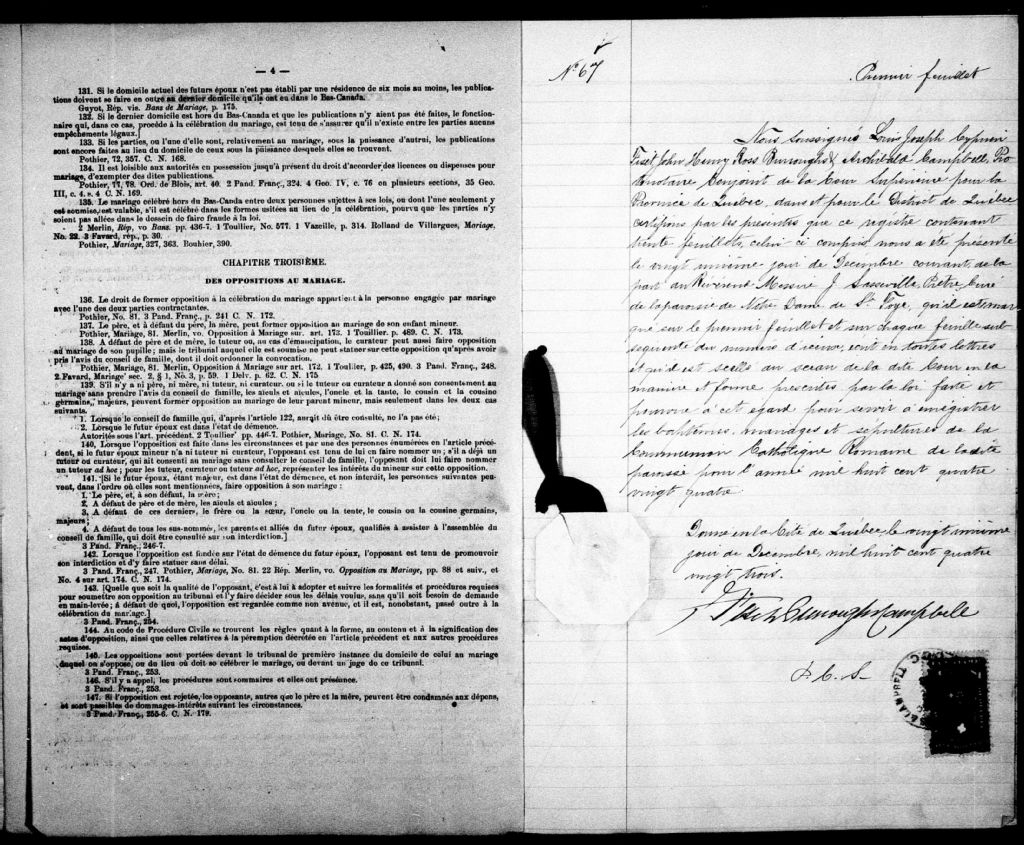 — 4 —
131. Si le domicile actuel des futurs époux n'est pas établi par une résidence de six mois au moins, les publica-
tions doivent se faire en outre au dernier domicile qu'ils ont eu dans le Bas-Canada.
Guyot, Rép. vis. Bans de Mariage, p. 175.
132. Si le dernier domicile est hors du Bas-Canada et que les publications n'y aient pas été faites, le fonction-
naire qui, dans ce cas, procède à la célébration du mariage, est tenu de s'assurer qu'il n'existe entre les parties aucuns
empêchements légaux.
133. Si les parties, ou l'une d'elles, sont, relativement au mariage, sous la puissance d'autrui, les publications
sont encore faites au lieu du domicile de ceux sous la puissance desquels elles se trouvent.
Pothier, 72, 357. C. N. 168.
134. Il est loisible aux autorités en possession jusqu'à présent du droit d'accorder des licences ou dispenses pour
mariage, d'exempter des dites publications.
Pothier, 77, 78. Ord. de Blois, art. 40. 2 Pand. Franç., 324. 4 Geo. IV, c. 76 en plusieurs sections, 35 Geo.
III, c. 4, s. 4 C. N. 169.
135. Le mariage célébré hors du Bas-Canda entre deux personnes sujettes à ses lois, ou dont l'une seulement y
est soumise, est valable, s'il est célébré dans les formes usitées au lieu de la célébration, pourvu que les parties n'y
soient pas allées dans le dessein de faire fraude à la loi.
2 Merlin, Rép, vo Bans. pp. 436-7. 1 Toullier, No. 577. 1 Vazeille, p. 314. Rolland de Villargues, Mariage,
No. 22. 3 Favard, rép., p. 30.
Pothier, Mariage, 327, 363. Rouhier, 390.
CHAPITRE TROISIÈME.
DES OPPOSITIONS AU MARIAGE.
136. Le droit de former opposition à la célébration du mariage appartient à la personne engagée par mariage
avec l'une des deux parties contractantes.
Pothier, No. 81. 3 Pand. Franç., p. 241 C. N. 172.
137. Le père, et à défaut du père, la mère, peut former opposition au mariage de son enfant mineur.
Pothier, Mariage, 81. Merlin, vo. Opposition à Mariage sur. art. 173. 1 Touillier. p. 489. C. N. 173.
138. A défaut de père et de mère, le tuteur ou, au cas d'émancipation, le curateur peut aussi faire opposition
au mariage de son pupille; mais le tribunal auquel elle est soumise ne peut statuer sur cette opposition qu'après avoir
pris l'avis du conseil de famille, dont il doit ordonner la convocation.
Pothier, Mariage, 81. Merlin, Opposition à Mariage sur art. 172. 1 Toullier, p. 425, 490. 3 Pand. Franç., 248.
2 Favard, Mariage sec. 2. § 1, No. 3, p. 59. 1 Delv. p. 62. C. N. 175
139. S'il n'y a ni père, ni mère, ni tuteur, ni curateur, ou si le tuteur ou curateur a donné son consentement au
mariage sans prendre l'avis du conseil de famille, les aieuls et aieules, l'oncle et la tante, le cousin et la cousine
germains, majeurs, peuvent former opposition au mariage de leur parent mineur, mais seulement dans les deux cas
suivants.
1. Lorsque le conseil de famille qui, d'après l'article 122, aurait dû être consulté, ne l'a pas été;
2. Lorsque le futur époux est dans l'état de démence.
Autorités sous l'art. précédent. 2 Toulier pp. 446-7. Pothier, Mariage, No. 81. C. N. 174.
140. Lorsque l'opposition est faite dans les circonstances et par une des personnes énumérées en l'article précé-
dent, si le futur époux mineur n'a ni tuteur ni curateur, l'opposant est tenu de lui en faire nommer un; s'il a déjà un
tuteur ou curateur, qui ait consenti au mariage sans consulter le conseil de famille, l'opposant doit lui faire nommer
un tuteur ad hoc; pour les tuteur, curateur ou tuteur ad hoc, représenter les intérêts du mineur sur cette opposition.
141. [Si le futur époux, étant majeur, est dans l'état de démence, et non interdit, les personnes suivantes peu-
vent, dans l'ordre où elles sont mentionnées, faire opposition à son mariage:
1. Le père, et, à son défaut, la mère;
2. A défaut de père et de mère, les aieuls et aieules;
3. A défaut de ces derniers, le frère ou la sœur, l'oncle ou la tente, le cousin ou la cousine germains,
majeurs;
4. A défaut de tous les sus-nommés, les parents et alliés du futur époux, qualifiés à assister à l'assemblée du
conseil de famille, qui doit être consulté sur son interdiction.]
3 Pand. Franç., 246-7.
142. Lorsque l'opposition est fondée sur l'état de démence du futur époux, l'opposant est tenu de promouvoir
son interdiction et d'y faire statuer sans délai.
3 Pand. Franç., 247. Pothier, Mariage, No. 81. 22 Rép. Merlin, vo. Opposition au Mariage, pp. 88 et suiv., et
No. 4 sur art. 174. C. N. 174.
143. [Quelle que soit la qualité de l'opposant, c'est à lui à adopter et suivre les formalités et procédures requises
pour soumettre son opposition au tribunal et l'y faire décider sous les délais voulus, sans qu'il soit besoin de demande
en main-levée; à défaut de quoi, l'opposition est regardée comme non avenue, et il est, nonobstant, passé outre à la
célébration du mariage.]
3 Pand. Franç., 254.
144. Au code de Procédure Civile se trouvent les règles quant à la forme, au contenu et à la signification des
actes d'opposition, ainsi que celles relatives à la péremption décrétée en l'article précédent et aux autres procédures
requises.
145. Les oppositions sont portées devant le tribunal de première instance du domicile de celui au mariage
duquel on s'oppose, ou du lieu où doit se célébrer le mariage, ou devant un juge de ce tribunal.
3 Pand. Franç., 253.
146. S'il y a appel, les procédures sont sommaires et elles ont préséance.
3 Pand. Franç., 253.
147. Si l'opposition est rejetée, les opposants, autres que le père et la mère, peuvent être condamnés aux dépens,
et sont passibles de dommages-intérêts suivant les circonstances.
3 Pand. Franç., 255-6. C. N. 179.
No 67
Premier feuillet
Nous soussignés Louis Joseph Cyprien
Fiset, John Henry Ross Burroughs & Archibald Campbell, Pro
tonotaire Conjoint de la Cour Supérieure pour la
Province de Québec, dans et pour le District de Québec
certifions par les présentes que ce registre contenant
trente feuillets, celui ci compris, nous a été présenté
le vingt unième jour de Décembre courant, de la
part du Révérend Messire J Sasseville, Prêtre, Curé
de la paroisse de Notre Dame de Ste Foye, qu'il est mar
qué sur le premier feuillet et sur chaque feuillet sub-
séquent du numéro d'icelui, écrit en toutes lettres
et qu'il est scellé du sceau de la dite Cour en la
manière et forme prescrites par la loi faite et
pourvue à cet égard pour servir à enregistrer
les baptêmes, mariages et sépultures de la
Communion Catholique Romaine de la dite
paroisse pour l'année mil huit cent quatre
vingt quatre
Donné en la Cité de Québec, le vingt unième
jour de Décembre, mil huit cent quatre
vingt trois.
Fiset Burroughs Campbell
P. C. S.
CAMPBELL